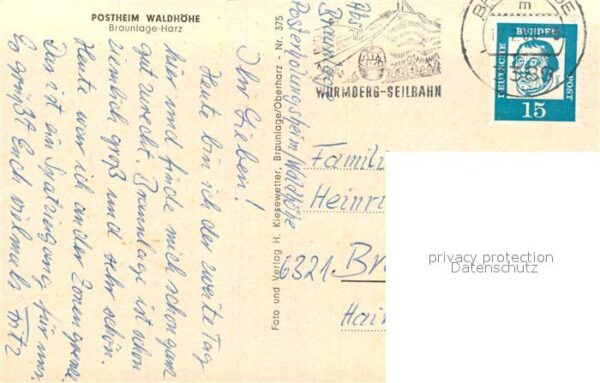 POSTHEIM WALDHÖHE
Braunlage-Harz
Ihr Lieben!
Heute bin ich der zweite Tag
hier und finde mich schon ganz
gut zurecht. Braunlage ist schon
ziemlich groß und sehr schön.
Heute war ich an der Zonengrenze.
Das ist ein Spaziergang für uns.
Es grüßt Euch vielmals Fritz
Foto und Verlag H. Kiesewetter, Braunlage/Oberharz - Nr. 375
Abs.
Braunlage
Posterholungsheim Waldhöhe
WURMBERG-SEILBAHN
DEUTSCHE BUNDESPOST
15
Famili
Heinri
6321 Br
Hai
privacy protection
Datenschutz